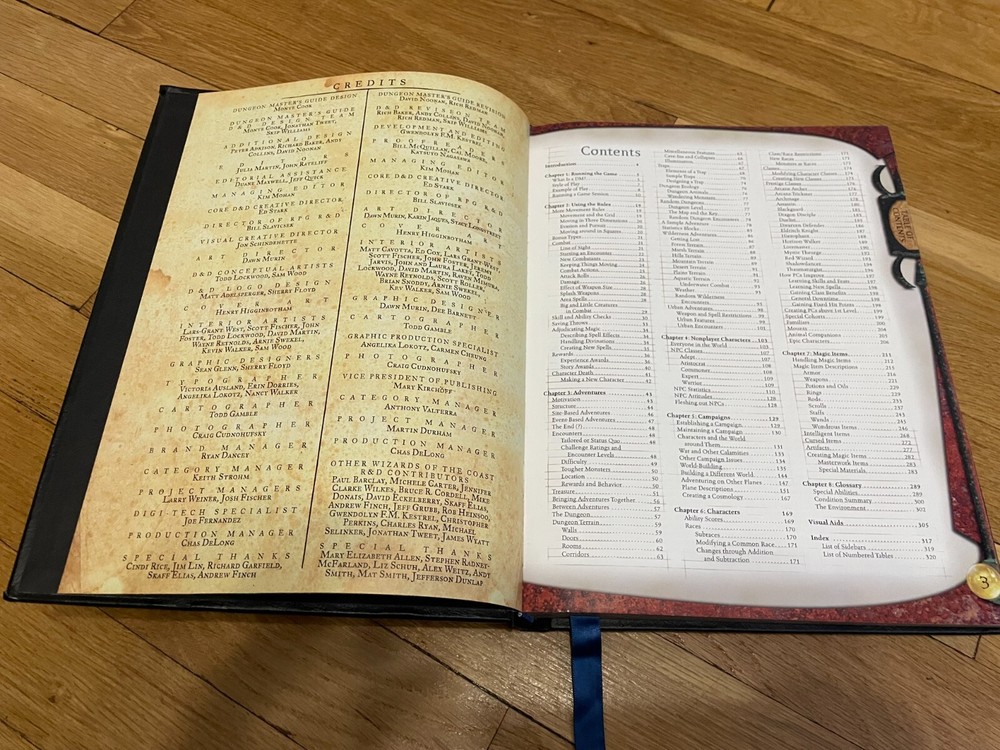 CREDITS
DUNGEON MASTER'S GUIDE DESIGN
MONTE COOK
DUNGEON MASTER'S GUIDE
D&D DESIGN TEAM
MONTE COOK, JONATHAN TWEET,
SKIP WILLIAMS
ADDITIONAL DESIGN
PETER ADKISON, RICHARD BAKER, ANDY
COLLINS, DAVID NOONAN
JULIA MARTIN, JOHN RATELIFF
EDITORIAL ASSISTANCE
DUANE MAXWELL, JEFF QUICK
MANAGING EDITOR
KIM MOHAN
CORE D&D CREATIVE DIRECTOR
ED STARK
DIRECTOR OF RPG R&D
BILL SLAVICSEK
VISUAL CREATIVE DIRECTOR
JON SCHINDEHETTE
ART DIRECTOR
DAWN MURIN
D&D CONCEPTUAL ARTISTS
TODD LOCKWOOD, SAM WOOD
D&D LOGO DESIGN
MATT ADELSPERGER, SHERRY FLOYD
COVER ART
HENRY HIGGINBOTHAM
INTERIOR ARTISTS
LARS GRANT-WEST, SCOTT FISCHER, JOHN
FOSTER, TODD LOCKWOOD, DAVID MARTIN,
WAYNE REYNOLDS, ARNIE SWEKEL,
KEVIN WALKER, SAM WOOD
GRAPHIC DESIGNERS
SEAN GLENN, SHERRY FLOYD
TYPOGRAPHERS
VICTORIA AUSLAND, ERIN DORRIES,
ANGELIKA LOKOTZ, NANCY WALKER
CARTOGRAPHER
TODD GAMBLE
PHOTOGRAPHER
CRAIG CUDNOHUFSKY
BRAND MANAGER
RYAN DANCEY
CATEGORY MANAGER
KEITH STROHM
PROJECT MANAGERS
LARRY WEINER, JOSH FISCHER
DIGI-TECH SPECIALIST
JOE FERNANDEZ
PRODUCTION MANAGER
CHAS DELONG
SPECIAL THANKS
CINDI RICE, JIM LIN, RICHARD GARFIELD,
SKAFF ELIAS, ANDREW FINCH
DUNGEON MASTER'S GUIDE REVISION
DAVID NOONAN, RICH REDMAN
D&D REVISION TEAM
RICH BAKER, ANDY COLLINS, DAVID NOONAN,
RICH REDMAN, SKIP WILLIAMS
DEVELOPMENT AND EDITING
GWENDOLYN F.M. KESTREL
PROOFREADERS
BILL MCQUILLAN, CAL MOORE,
MANAGING EDITOR
KIM MOHAN
CORE D&D CREATIVE DIRECTOR
ED STARK
DIRECTOR OF RPG R&D
BILL SLAVICSEK
ART DIRECTORS
DAWN MURIN, KARIN JAQUES, STACY LONGSTREET
COVER ART
HENRY HIGGINBOTHAM
INTERIOR ARTISTS
MATT CAVOTTA, ED COX, LARS GRANT-WEST,
SCOTT FISCHER, JOHN FOSTER, JEREMY
JARVIS, JOHN AND LAURA LAKEY, TODD
LOCKWOOD, DAVID MARTIN, RAVEN MIMURA,
WAYNE REYNOLDS, SCOTT ROLLER,
BRIAN SNODDY, ARNIE SWEKEL,
KEV WALKER, SAM WOOD
GRAPHIC DESIGNERS
DAWN MURIN, DEE BARNETT
CARTOGRAPHER
TODD GAMBLE
GRAPHIC PRODUCTION SPECIALIST
ANGELIKA LOKOTZ, CARMEN CHEUNG
PHOTOGRAPHER
CRAIG CUDNOHUFSKY
VICE PRESIDENT OF PUBLISHING
MARY KIRCHOFF
CATEGORY MANAGER
ANTHONY VALTERRA
PROJECT MANAGER
MARTIN DURHAM
PRODUCTION MANAGER
CHAS DELONG
OTHER WIZARDS OF THE COAST
R&D CONTRIBUTORS
PAUL BARCLAY, MICHELE CARTER, JENNIFER
CLARKE WILKES, BRUCE R. CORDELL, MIKE
DONAIS, DAVID ECKELBERRY, SKAFF ELIAS,
ANDREW FINCH, JEFF GRUBB, ROB HEINSOO,
GWENDOLYN F.M. KESTREL, CHRISTOPHER
PERKINS, CHARLES RYAN, MICHAEL
SELINKER, JONATHAN TWEET, JAMES WYATT
SPECIAL THANKS
MARY-ELIZABETH ALLEN, STEPHEN RADNEY-
MCFARLAND, LIZ SCHUH, ALEX WEITZ, ANDY
SMITH, MAT SMITH, JEFFERSON DUNLAP
Contents
Introduction 4
Chapter 1: Running the Game 5
What Is a DM? 5
Style of Play
Example of Play
Running a Game Session
Chapter 2: Using the Rules
More Movement Rules
Movement and the Grid
Moving in Three Dimensions 20
Evasion and Pursuit 20
Moving around in Squares 20
Bonus Types 21
Combat
Line of Sight
Starting an Encounter
New Combatants
Keeping Things Moving
Combat Actions
Attack Rolls
Damage
Effect of Weapon Size
Splash Weapons
Area Spells
Big and Little Creatures
in Combat 29
Skill and Ability Checks 30
Saving Throws
Adjudicating Magic
Describing Spell Effects 34
Handling Divinations
Creating New Spells
Rewards
Experience Awards
Story Awards 40
Character Death 41
Making a New Character 42
Chapter 3: Adventures 43
Motivation 43
Structure 44
Site-Based Adventures 46
Event-Based Adventures 47
The End (?) 48
Encounters 48
Tailored or Status Quo 48
Challenge Ratings and
Encounter Levels 48
Difficulty 49
Tougher Monsters 50
Location 50
Rewards and Behavior 50
Treasure 51
Bringing Adventures Together 56
Between Adventures 57
The Dungeon 57
Dungeon Terrain 59
Walls 59
Doors 60
Rooms 62
Corridors 63
Miscellaneous Features
Cave-Ins and Collapses
Illumination
Traps
Elements of a Trap
Sample Traps
Designing a Trap 74
Dungeon Ecology
Dungeon Animals
Wandering Monsters
Random Dungeons
Dungeon Level
The Map and the Key
Random Dungeon Encounters 78
A Sample Adventure
Statistics Blocks
Wilderness Adventures
Getting Lost
Forest Terrain
Marsh Terrain
Hills Terrain
Mountain Terrain
Desert Terrain
Plains Terrain
Aquatic Terrain
Underwater Combat
Weather 93
Random Wilderness
Encounters 95
Urban Adventures 98
Weapon and Spell Restrictions 99
Urban Features 99
Urban Encounters 101
Chapter 4: Nonplayer Characters 103
Everyone in the World 103
NPC Classes 107
Adept 107
Aristocrat 108
Commoner 108
Expert 109
Warrior 109
NPC Statistics 110
NPC Attitudes 128
Fleshing out NPCs 128
Chapter 5: Campaigns 129
Establishing a Campaign 129
Maintaining a Campaign 130
Characters and the World
around Them 131
War and Other Calamities 133
Other Campaign Issues 134
World-Building 135
Building a Different World 144
Adventuring on Other Planes 147
Plane Descriptions 150
Creating a Cosmology 167
Chapter 6: Characters 169
Ability Scores 169
Races 170
Subraces 170
Modifying a Common Race 171
Changes through Addition
and Subtraction 171
Class/Race Restrictions 171
New Races 171
Monsters as Races 172
Classes 174
Modifying Character Classes 174
Creating New Classes 175
Prestige Classes 176
Arcane Archer
Arcane Trickster
Archmage
Assassin
Blackguard
Dragon Disciple
Duelist
Dwarven Defender
Eldritch Knight
Hierophant
Horizon Walker
Loremaster
Mystic Theurge
Red Wizard
Shadowdancer
Thaumaturgist
How PCs Improve 197
Learning Skills and Feats
Learning New Spells 198
Gaining Class Benefits
General Downtime
Gaining Fixed Hit Points
Creating PCs above 1st Level 199
Special Cohorts
Familiars
Mounts
Animal Companions
Epic Characters 206
Chapter 7: Magic Items 211
Handling Magic Items 212
Magic Item Descriptions 215
Armor 216
Weapons 221
Potions and Oils 229
Rings 229
Rods 233
Scrolls 237
Staffs 243
Wands 245
Wondrous Items 246
Intelligent Items 268
Cursed Items 272
Artifacts 277
Creating Magic Items 282
Masterwork Items 283
Special Materials 283
Chapter 8: Glossary 289
Special Abilities 289
Condition Summary 300
The Environment 302
Visual Aids 305
Index 317
List of Sidebars 319
List of Numbered Tables 320
TABLE OF
CONTENTS
3